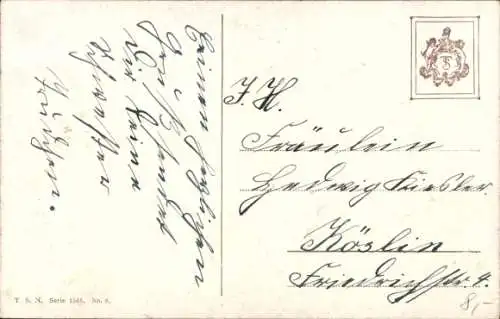 Einen herzlichen
Gruß
sendet
Dir Deine
Schwester
Trudchen.
J. H.
Fräulein
Hedwig Kiesler.
Köslin
Friedrichstr. 4.
8,-
T. S. N. Serie 1545. No. 6.